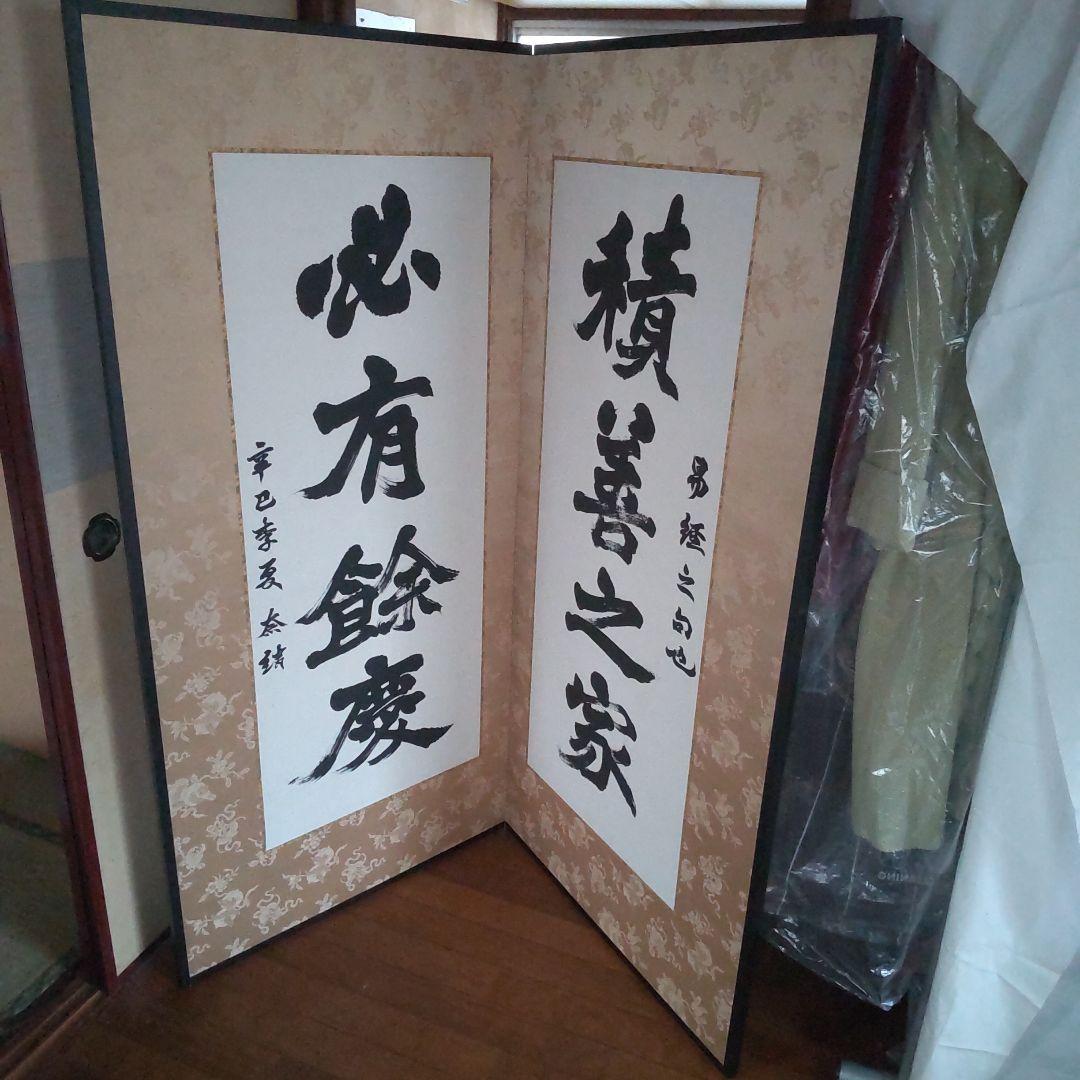 積善之家
易經之句也
必有餘慶
辛巳季夏